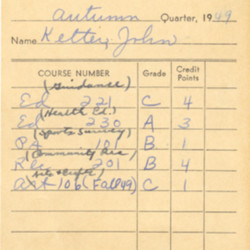 Autumn Quarter, 1949
Name Ketter, John
COURSE NUMBER Grade Credit Points
(Guidance)
Ed 221 C 4
(Health Ed.)
Ed 230 A 3
(Sports Survey)
PA 101 B 1
(Community Rec
Rec 201 B 4
Arts & Crafts)
Art 106 (Fall 49) C 1